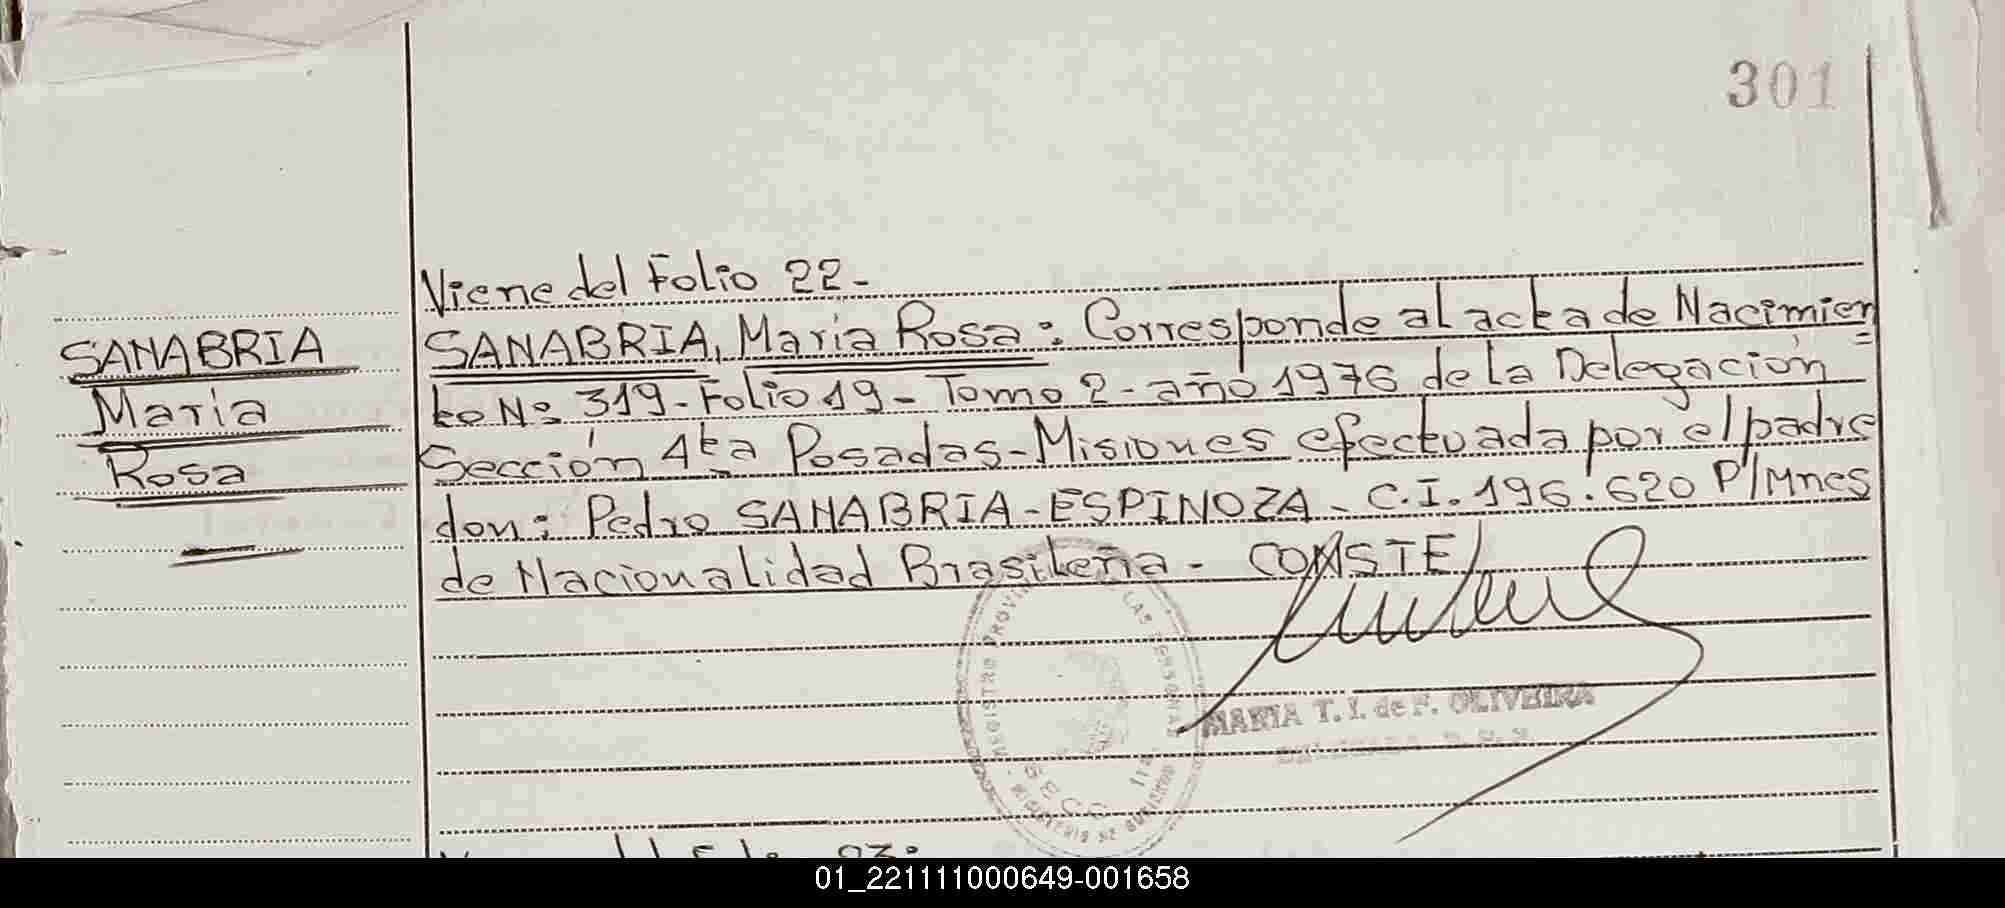 301
Viene del Folio 22-
SANABRIA, Maria Rosa: Corresponde al acta de Nacimien
to Nº 319-Folio 19- Tomo 2-año 1976 de la Delegación
Sección 4ta Posadas-Misiones efectuada por el padre
don: Pedro SANABRIA-ESPINOZA- C.I. 196.620 P/Mnes
de Nacionalidad Brasileña- CONSTE
SANABRIA
Maria
Rosa
REGISTRO PROVIN LAS PERSONAS
MINISTERIO DE GOBIERNO
SECC
MARIA T. I. de F. OLIVEIRA
01_221111000649-001658